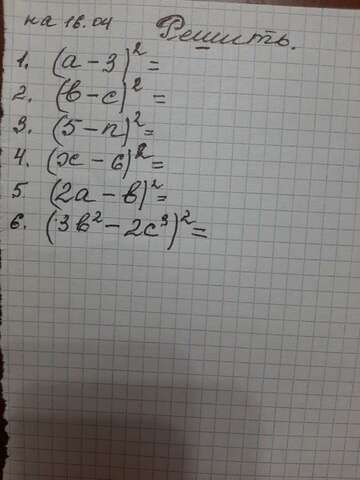 на 16.04 Решить.
1. (а - 3)² =
2. (в - с)² =
3. (5 - n)² =
4. (х - 6)² =
5. (2а - в)² =
6. (3в² - 2с³)² =